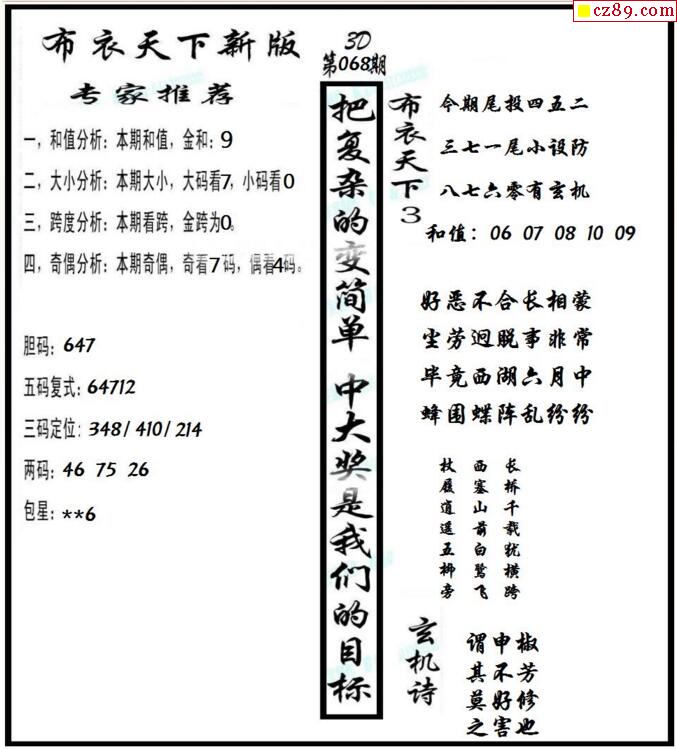 cz89.com
布衣天下新版
专家推荐
一，和值分析：本期和值，金和：9
二，大小分析：本期大小，大码看7，小码看0
三，跨度分析：本期看跨，金跨为0。
四，奇偶分析：本期奇偶，奇看7码，偶看4码。
胆码：647
五码复式：64712
三码定位：348/410/214
两码：46 75 26
包星：**6
3D
第068期
把复杂的变简单 中大奖是我们的目标
布衣天下3
今期尾投四五二
三七一尾小设防
八七六零有玄机
和值：06 07 08 10 09
好恶不合长相蒙
尘劳迥脱事非常
毕竟西湖六月中
蜂围蝶阵乱纷纷
长桥千载犹横跨
西塞山前白鹭飞
杖屦逍遥五柳旁
玄机诗
椒芳修也
申不好害
谓其莫之